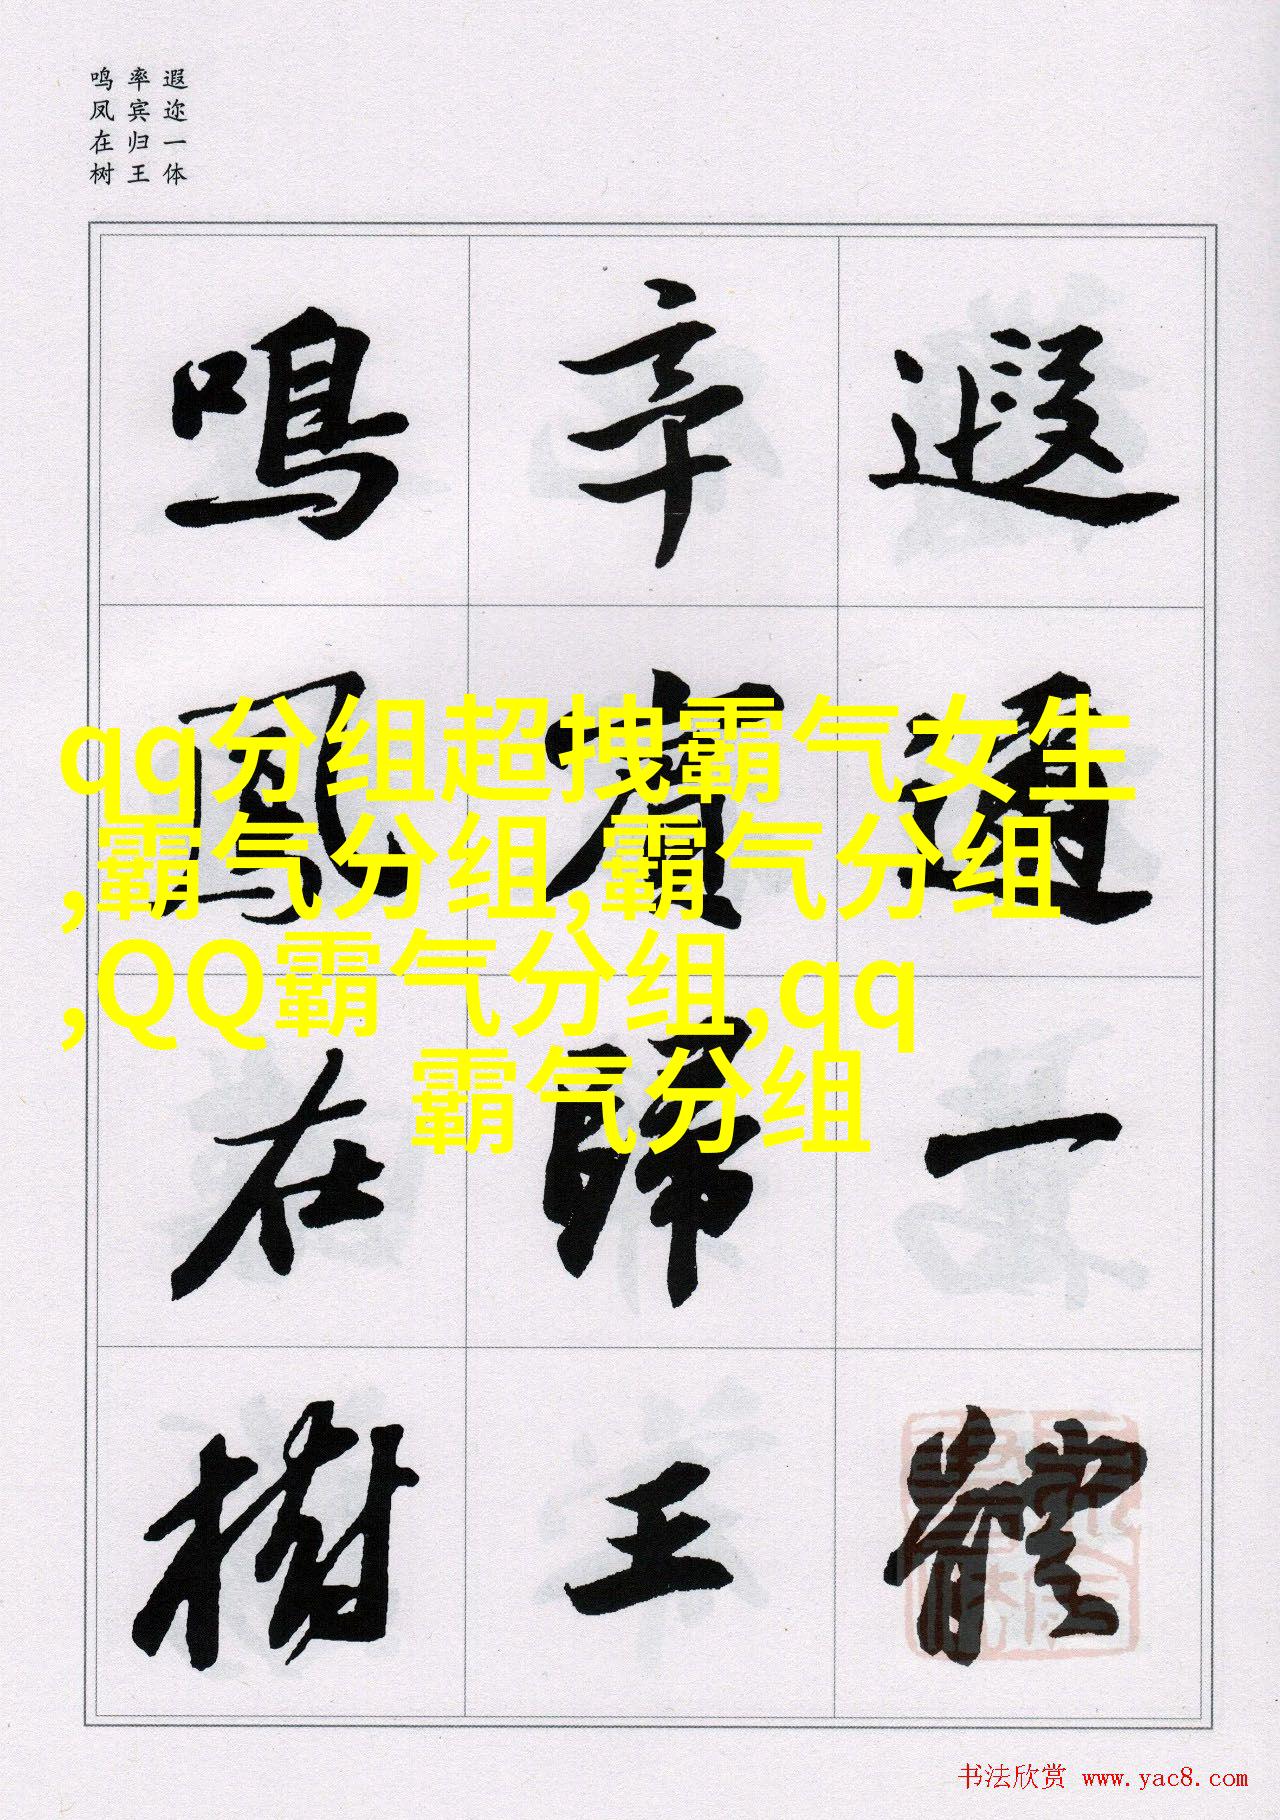 遐迩一体
率宾归王
鸣凤在树
遐邇一體
率賓歸王
鳴鳳在樹
qq分组超拽霸气女生
,霸气分组,霸气分组
,QQ霸气分组,qq
霸气分组
书法欣赏 www.yac8.com